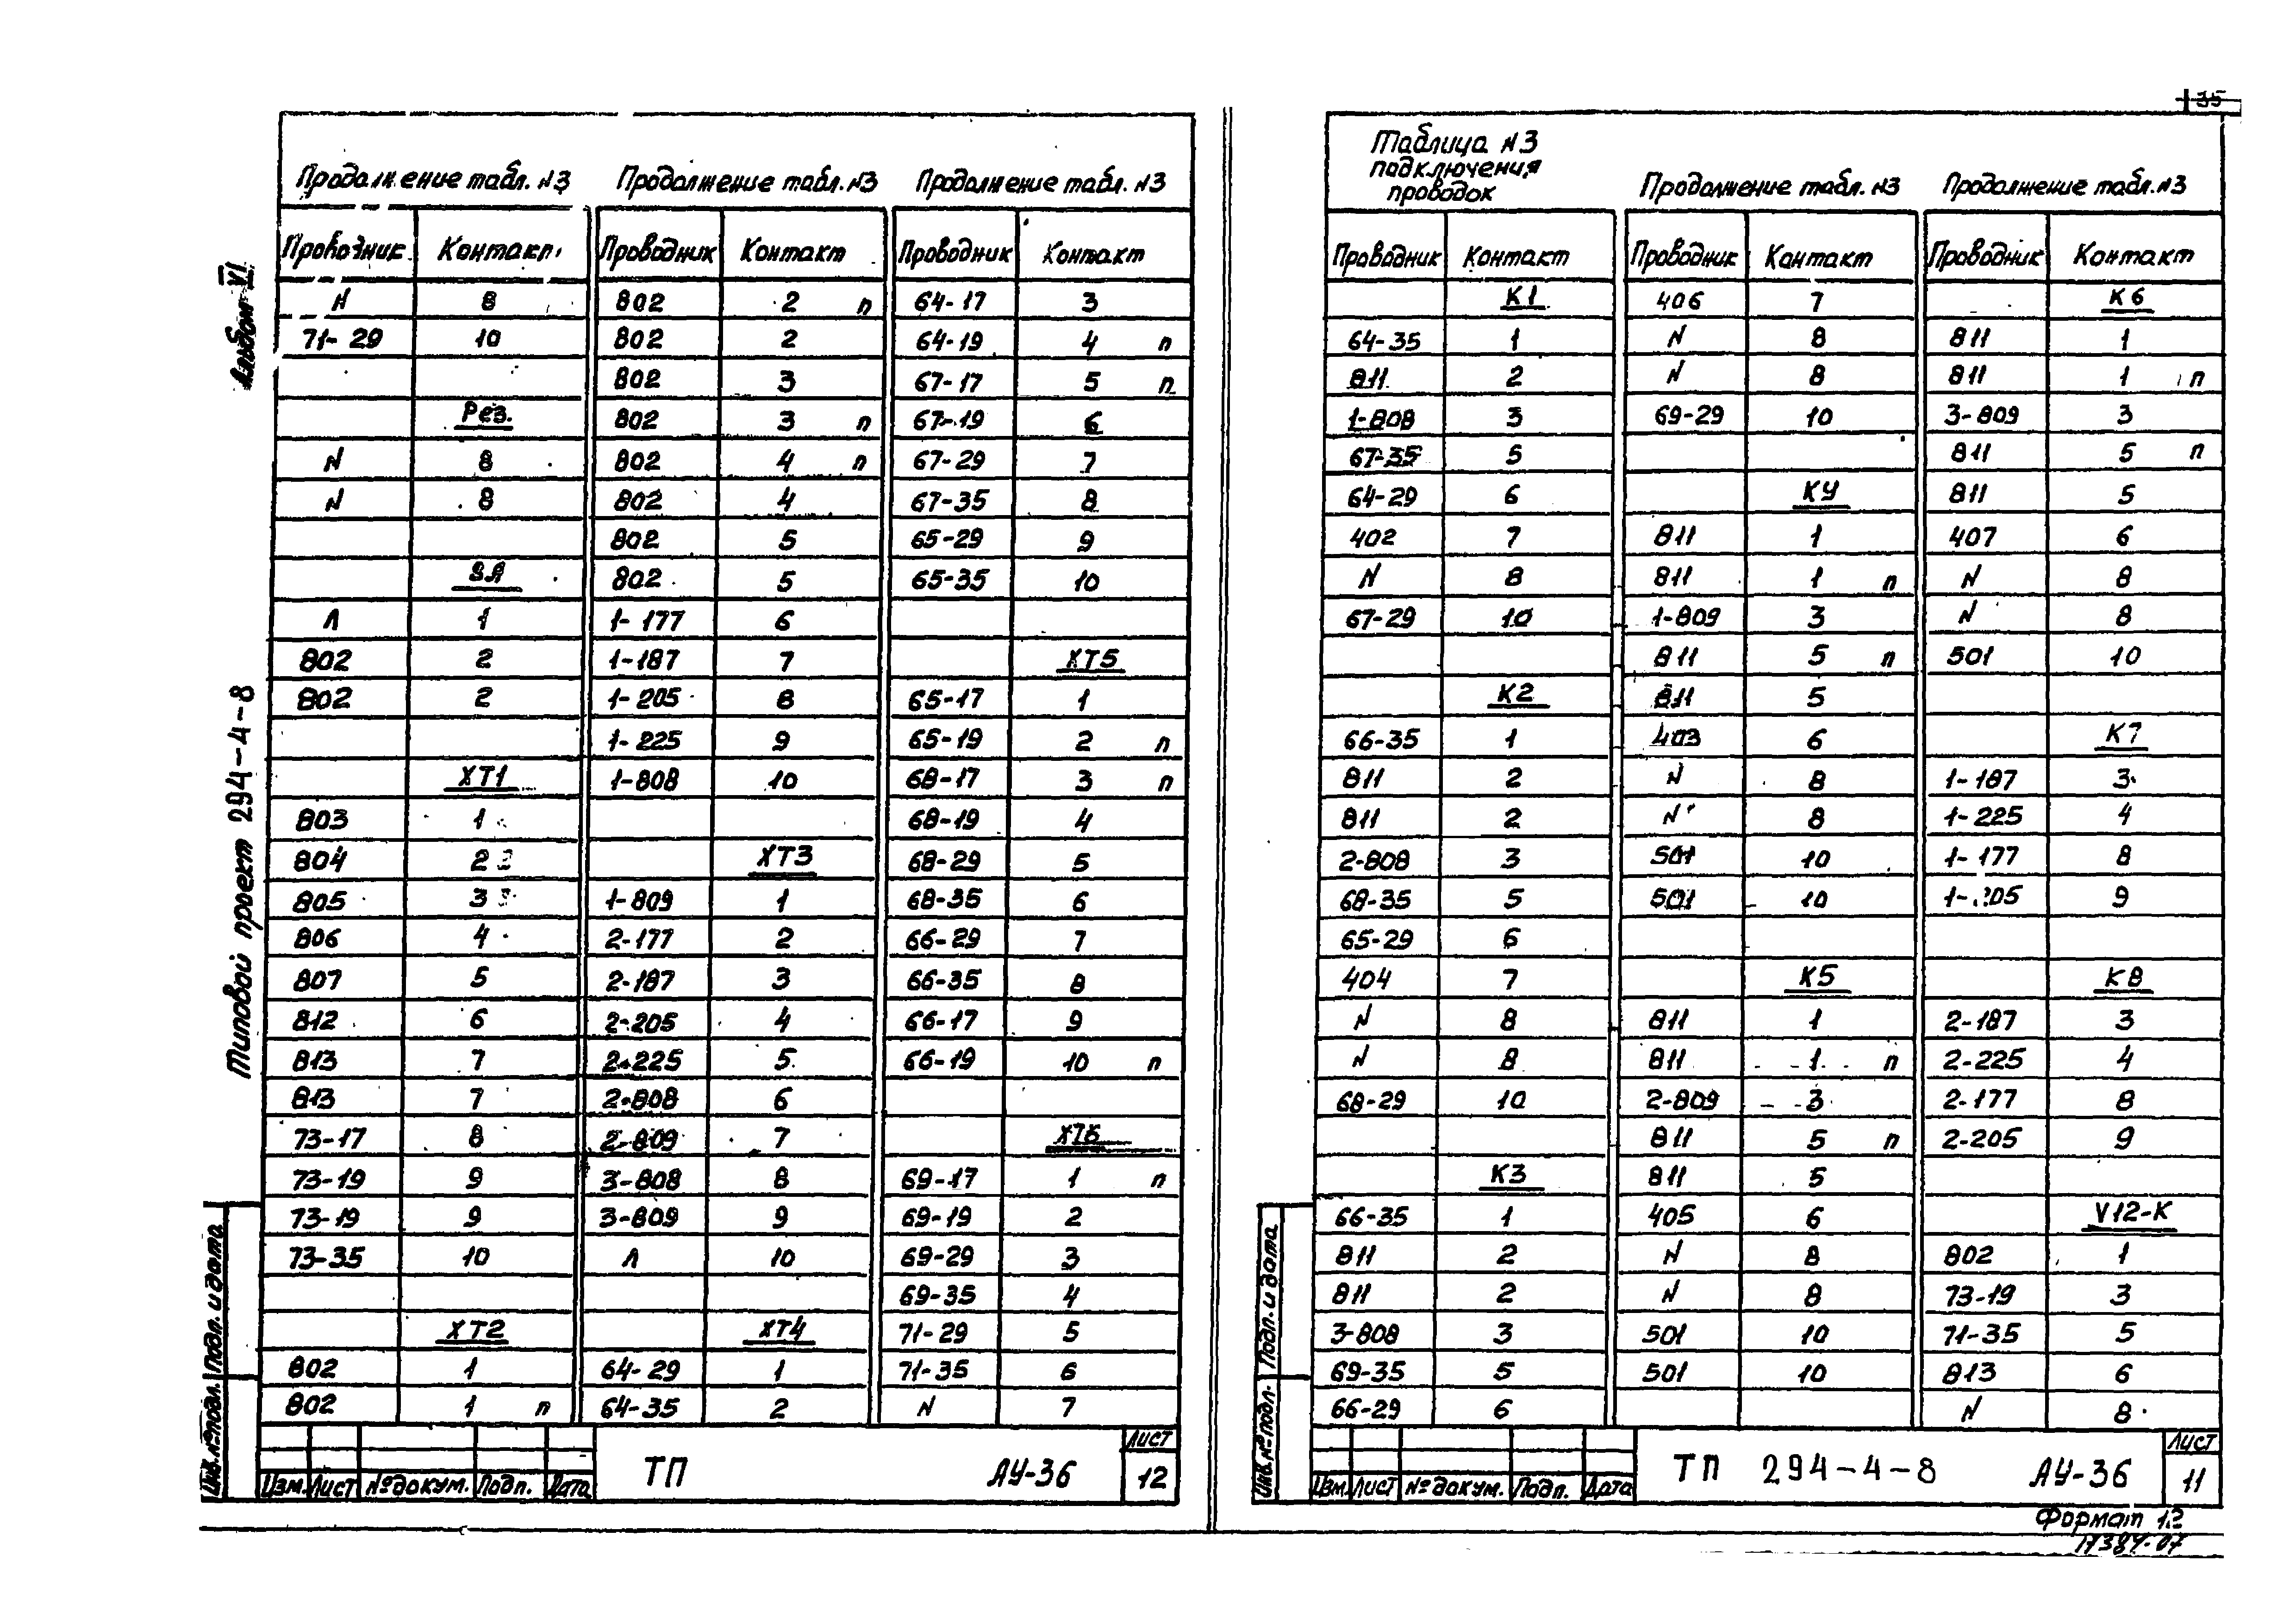 35
Альбом VI
Типовой проект 294-4-8
Продолжение табл. N3 Продолжение табл. N3 Продолжение табл. N3
Проводник Контакт Проводник Контакт Проводник Контакт
N 8 802 2 п 64-17 3
71-29 10 802 2 64-19 4 п
802 3 67-17 5 п
Рез. 802 3 п 67-19 6
N 8 802 4 п 67-29 7
N 8 802 4 67-35 8
802 5 65-29 9
SA 802 5 65-35 10
Л 1 1-177 6
802 2 1-187 7 XT5
802 2 1-205 8 65-17 1
1-225 9 65-19 2 п
XT1 1-808 10 68-17 3 п
803 1 68-19 4
804 2 XT3 68-29 5
805 3 1-809 1 68-35 6
806 4 2-177 2 66-29 7
807 5 2-187 3 66-35 8
812 6 2-205 4 66-17 9
813 7 2-225 5 66-19 10 п
813 7 2-808 6
73-17 8 2-809 7 XT6
73-19 9 3-808 8 69-17 1 п
73-19 9 3-809 9 69-19 2
73-35 10 Л 10 69-29 3
69-35 4
XT2 XT4 71-29 5
802 1 64-29 1 71-35 6
802 1 п 64-35 2 N 7
Изм. Лист № докум. Подп. Дата
ТП АУ-36
Лист
12
Инв. № подл. Подп. и дата
Таблица N3
подключения
проводок
Продолжение табл. N3 Продолжение табл. N3
Проводник Контакт Проводник Контакт Проводник Контакт
K1 406 7 K6
64-35 1 N 8 811 1
811 2 N 8 811 1 п
1-808 3 69-29 10 3-809 3
67-35 5 811 5 п
64-29 6 КУ 811 5
402 7 811 1 407 6
N 8 811 1 п N 8
67-29 10 1-809 3 N 8
811 5 п 501 10
K2 811 5
66-35 1 403 6 K7
811 2 N 8 1-187 3
811 2 N 8 1-225 4
2-808 3 501 10 1-177 8
68-35 5 501 10 9
65-29 6
404 7 K5 K8
N 8 811 1 2-187 3
N 8 811 1 п 2-225 4
68-29 10 2-809 3 2-177 8
811 5 п 2-205 9
K3 811 5
66-35 1 405 6 V12-K
811 2 N 8 802 1
811 2 N 8 73-19 3
3-808 3 501 10 71-35 5
69-35 5 501 10 813 6
66-29 6 N 8
Изм. Лист № докум. Подп. Дата
ТП 294-4-8 АУ-36
Лист
11
Инв. № подл. Подп. и дата
Формат 12
17384-07